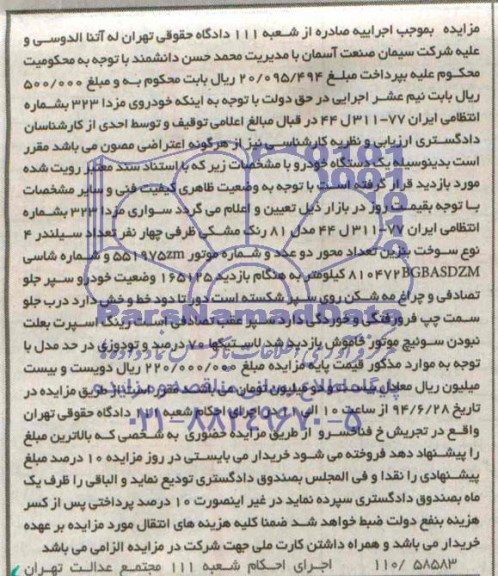 مزایده بموجب اجراییه صادره از شعبه ۱۱۱ دادگاه حقوقی تهران له آتنا الدوسی و
علیه شرکت سیمان صنعت آسمان با مدیریت محمد حسن دانشمند با توجه به محکومیت
محکوم علیه بپرداخت مبلغ ۲۰/۰۹۵/۴۹۴ ریال بابت محکوم به و مبلغ ۵۰۰/۰۰۰
ریال بابت نیم عشر اجرایی در حق دولت با توجه به اینکه خودروی مزدا ۳۲۳ بشماره
انتظامی ایران ۷۷-۳۱۱ل ۴۴ در قبال مبالغ اعلامی توقیف و توسط احدی از کارشناسان
دادگستری ارزیابی و نظریه کارشناسی نیز از هرگونه اعتراضی مصون می باشد مقرر
است بدینوسیله یک دستگاه خودرو با مشخصات زیر که با استناد سند معتبر رویت شده
مورد بازدید قرار گرفته است با توجه به وضعیت ظاهری کیفیت فنی و سایر مشخصات
با توجه بقیمت روز در بازار ذیل تعیین و اعلام می گردد سواری مزدا ۳۲۳ بشماره
انتظامی ایران ۷۷-۳۱۱ل ۴۴ مدل ۸۱ رنگ مشکی ظرفی چهار نفر تعداد سیلندر ۴
نوع سوخت بنزین تعداد محور دو عدد و شماره موتور ۵۵۱۹۷۵zm و شماره شاسی
۸۱۰۴۷۲BGBASDZM کیلومتر به هنگام بازدید ۱۶۵۱۲۵ وضعیت خودرو سپر جلو
تصادفی و چراغ مه شکن روی سپر شکسته است دور تا دود خط و خش دارد درب جلو
سمت چپ فرورفتگی و خوردگی دارد سپر عقب تصادفی است رینگ اسپرت بعلت
نبودن سوئیچ موتور خاموش بازدید شد لاستیکها ۷۰ درصد و تودوزی در حد مدل با
توجه به موارد مذکور قیمت پایه مزایده مبلغ ۲۲۰/۰۰۰/۰۰۰ ریال دویست و بیست
میلیون ریال معادل بیست و دو میلیون تومان می باشد. مقرر است از طریق مزایده در
تاریخ ۹۴/۶/۲۸ از ساعت ۱۰ الی ۱۱ در اجرای احکام شعبه ۱۱۱ دادگاه حقوقی تهران
واقع در تجریش خ فناخسرو از طریق مزایده حضوری به شخصی که بالاترین مبلغ
را پیشنهاد دهد فروخته می شود خریدار می بایستی در روز مزایده ۱۰ درصد مبلغ
پیشنهادی را نقدا و فی المجلس بصندوق دادگستری تودیع نماید و الباقی را ظرف یک
ماه بصندوق دادگستری سپرده نماید در غیر اینصورت ۱۰ درصد پرداختی پس از کسر
هزینه بنفع دولت ضبط خواهد شد ضمنا کلیه هزینه های انتقال مورد مزایده بر عهده
خریدار می باشد و همراه داشتن کارت ملی جهت شرکت در مزایده الزامی می باشد
۱۱۰/ ۵۸۵۸۳ اجرای احکام شعبه ۱۱۱ مجتمع عدالت تهران
ParsNamadData
۰۲۱-۸۸۳۴۹۶۷۰-۵